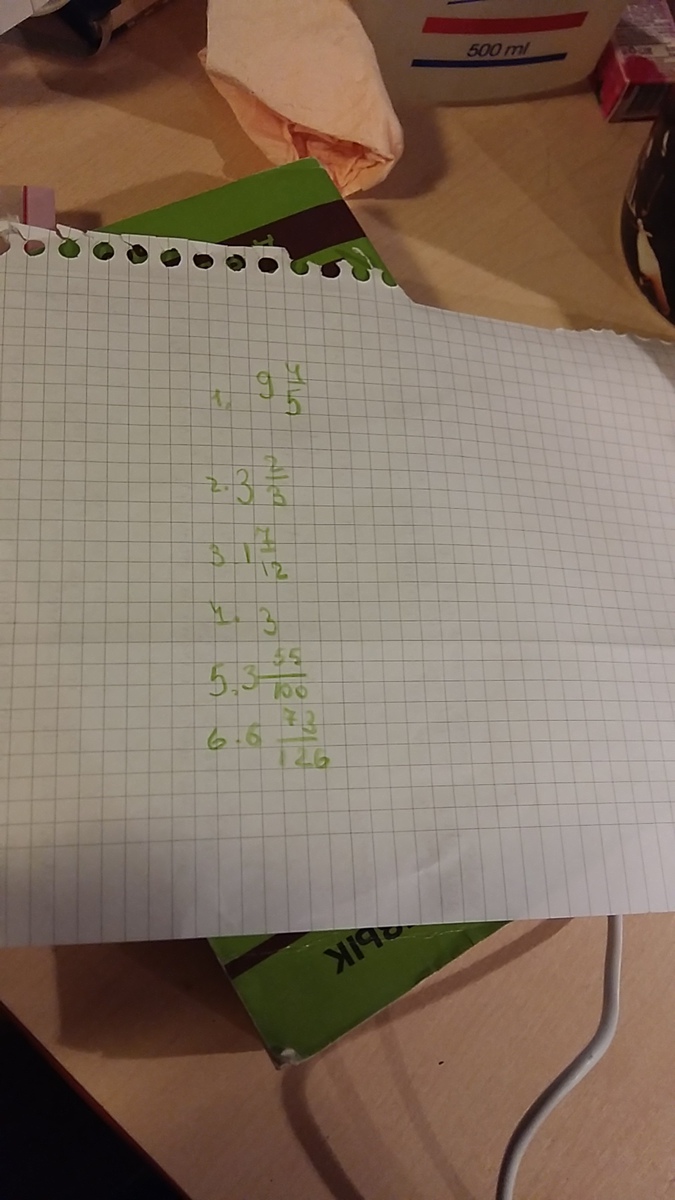 500 ml
1. 9 4/5
2. 3 2/3
3. 1 7/12
4. 3
5. 3 55/100
6. 6 72/126